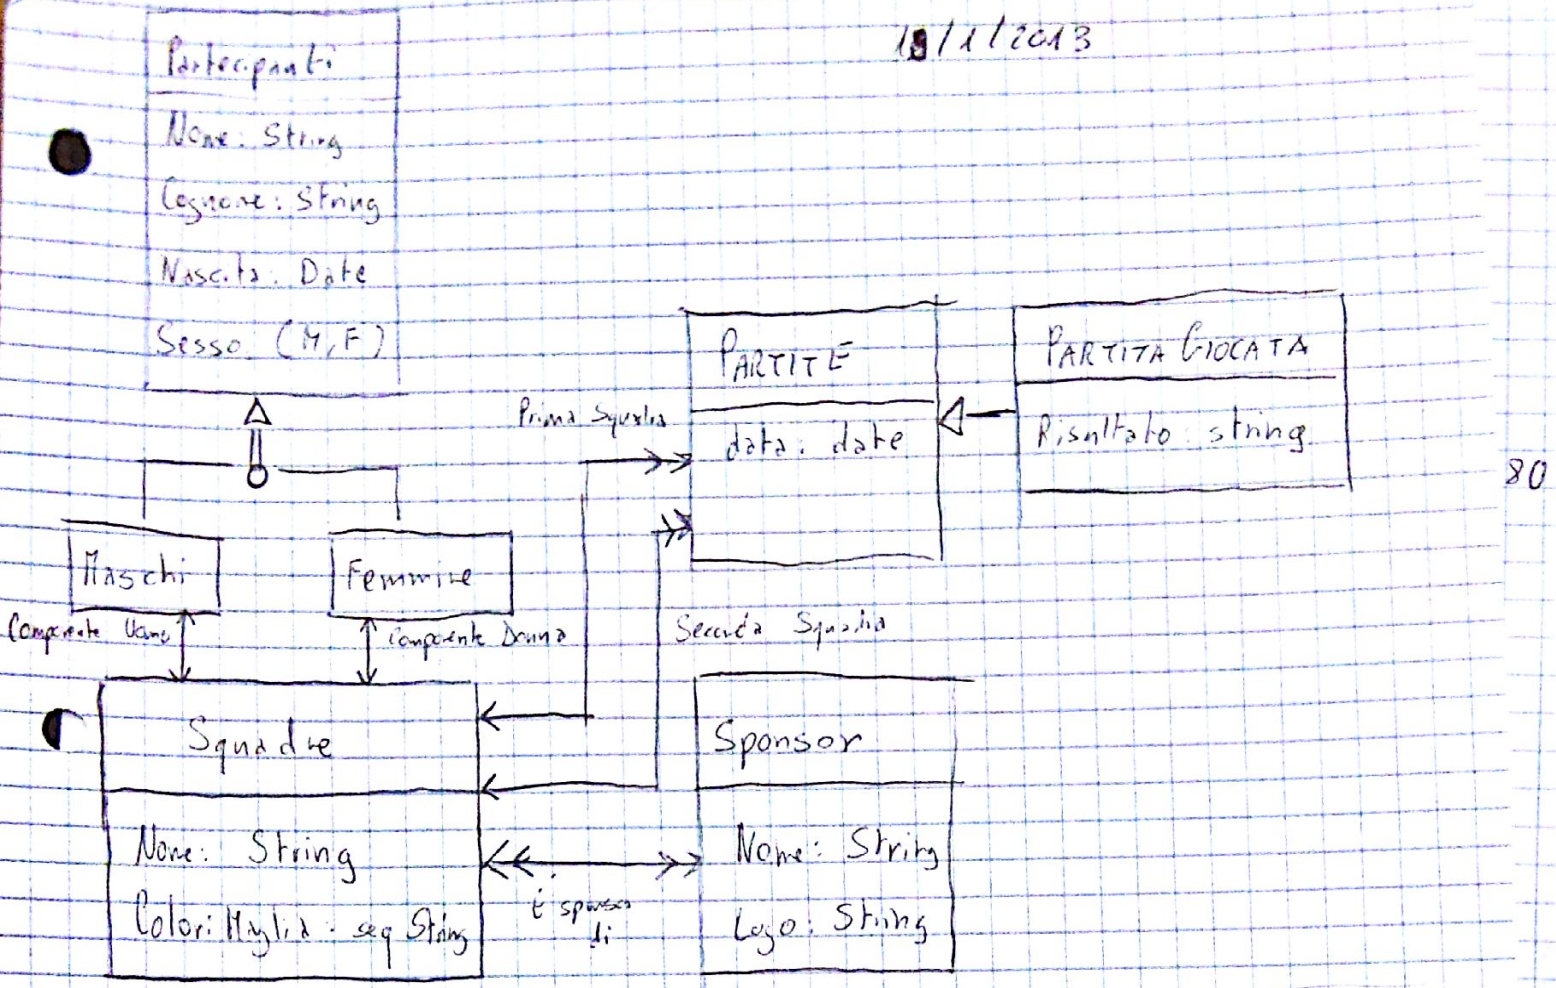 19/1/2013
Partecipanti
Nome: String
Cognome: String
Nascita: Date
Sesso (M,F)
PARTITE
data: date
PARTITA GIOCATA
Risultato: string
80
Prima Squadra
Maschi
Femmine
Componente Uomo
Componente Donna
Seconda Squadra
Squadre
Nome: String
Colori Maglia: seq String
È sponsor
di
Sponsor
Nome: String
Logo: String